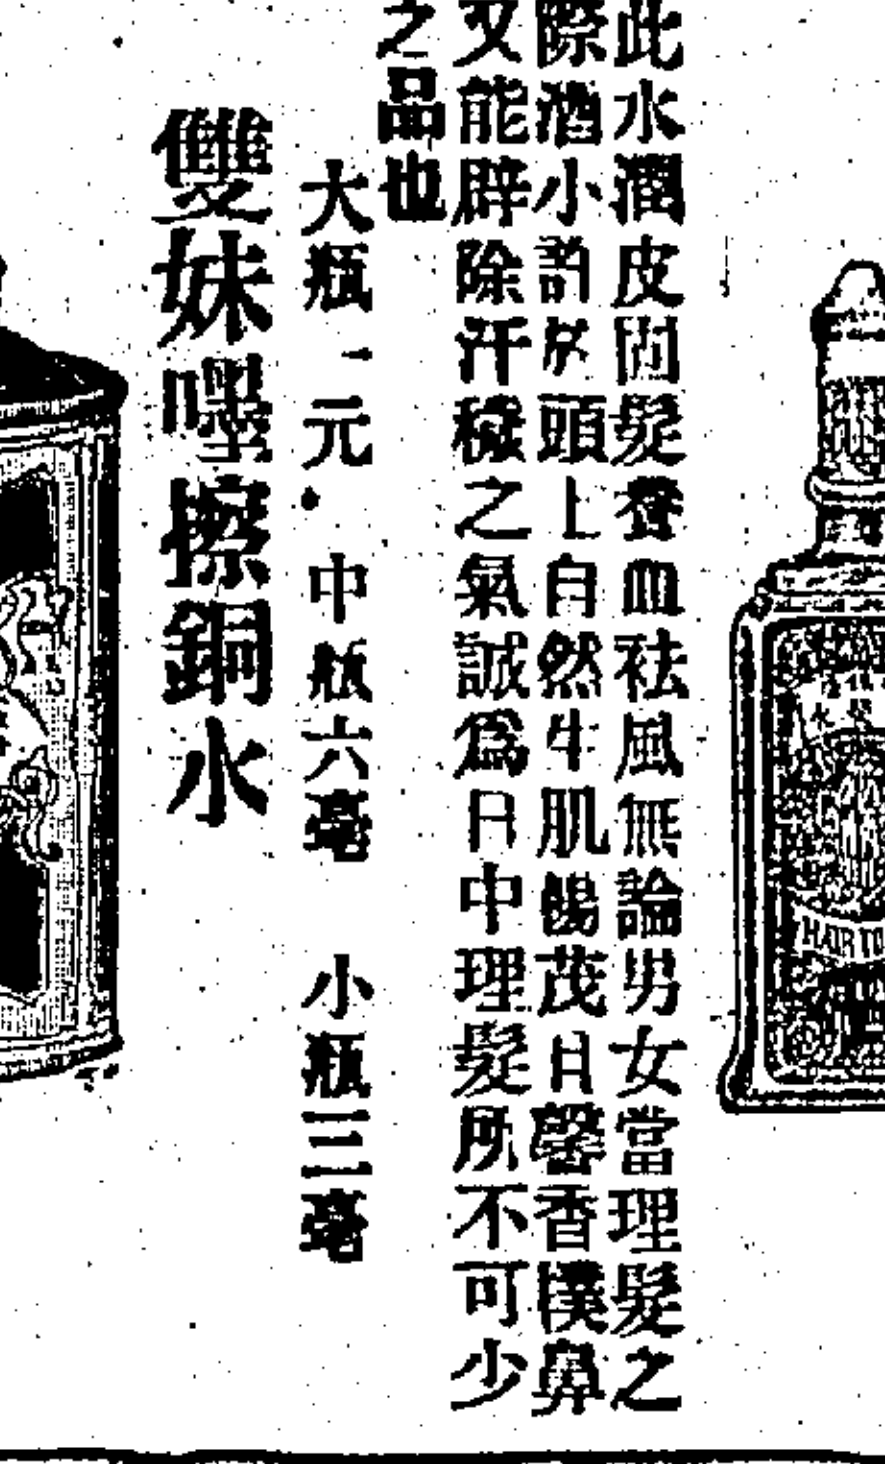 此水潤皮固髮養血祛風無論男女當理髮之
際洒小許於頭上自然生肌暢茂且馨香撲鼻
又能辟除汗穢之氣誠為日中理髮所不可少
之品也
大瓶一元 中瓶六毫 小瓶三毫
雙妹嘜擦銅水
HAIR TO